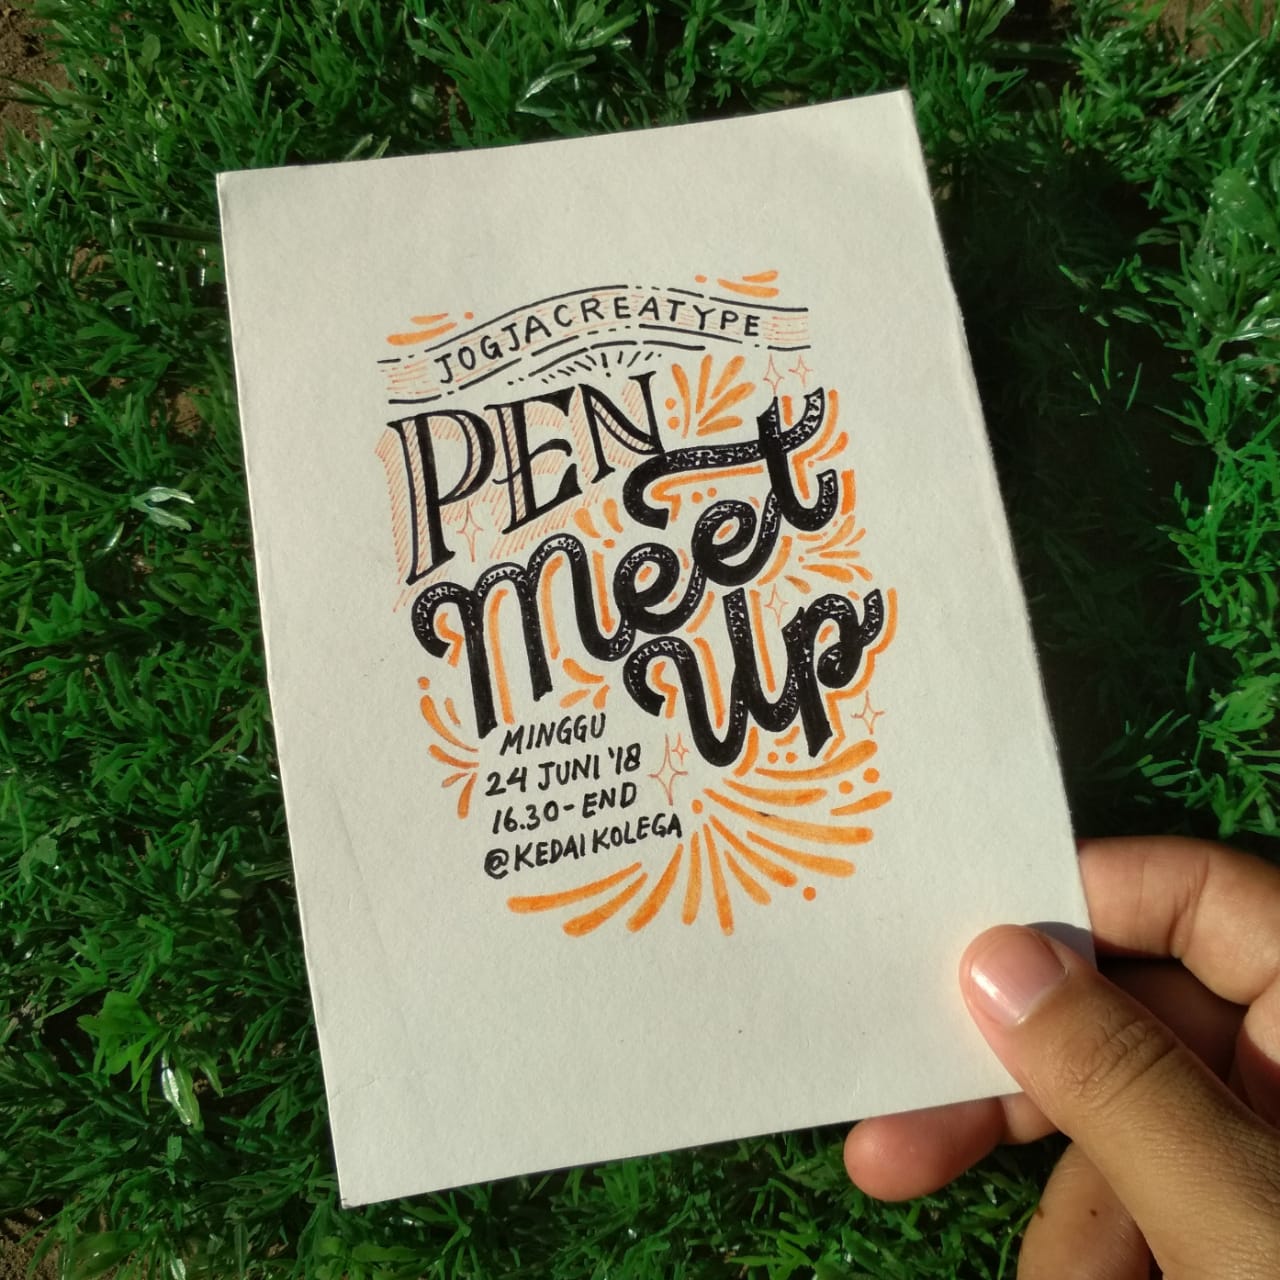 JOGJACREATYPE
PEN
Meet
Up
MINGGU
24 JUNI '18
16.30-END
@KEDAI KOLEGA